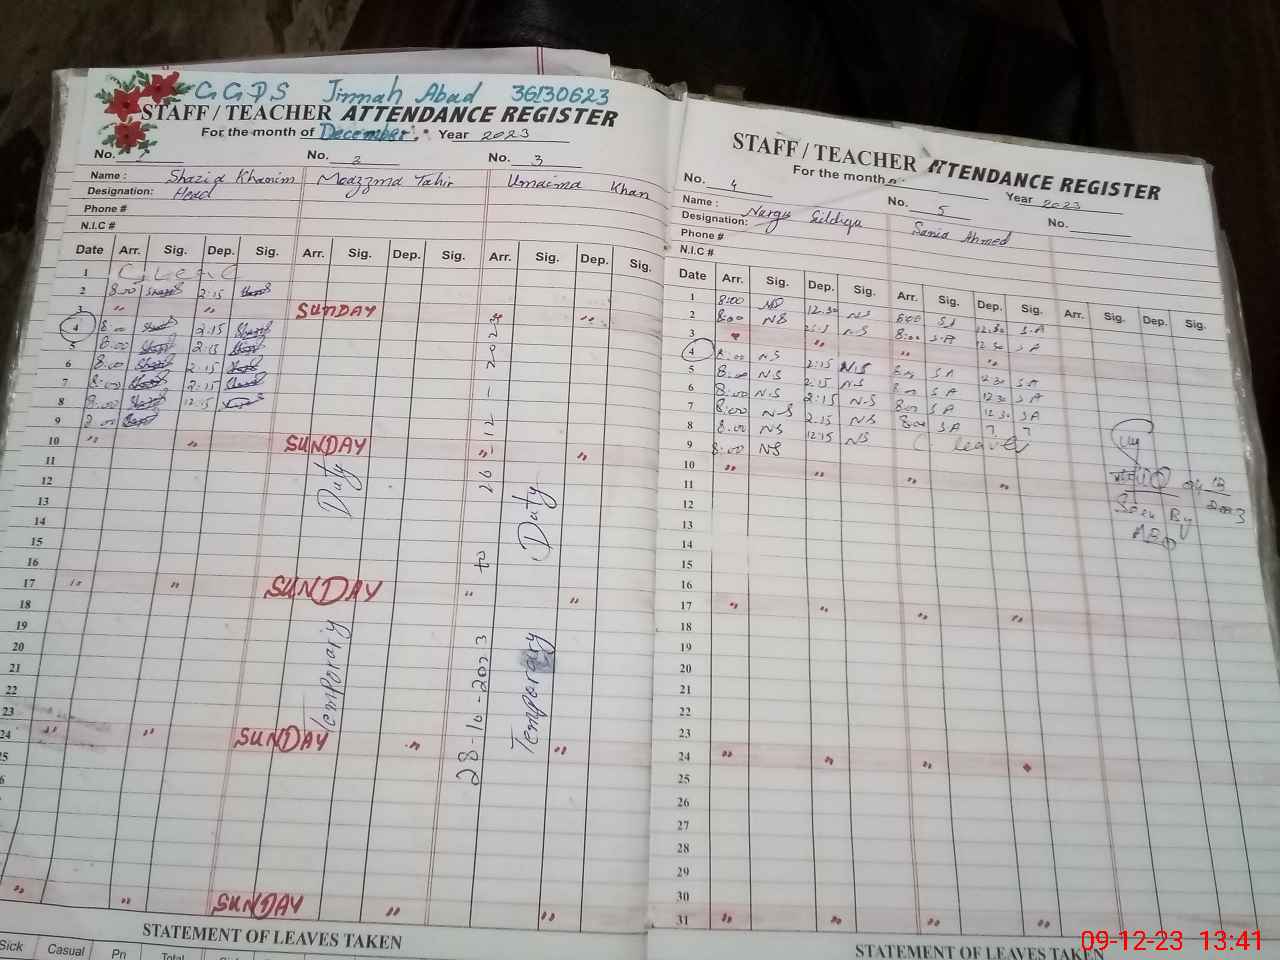 GGPS Jinnah Abad 36130623
STAFF / TEACHER ATTENDANCE REGISTER
For the month of December Year 2023
No. 1 No. 2 No. 3
Name : Shazia Khanim Moazzma Tahir Umaima Khan
Designation: Head
Phone #
N.I.C #
Date Arr. Sig. Dep. Sig. Arr. Sig. Dep. Sig. Arr. Sig. Dep. Sig.
1
2 8:00 2:15
3 " " SUNDAY " "
4 8:00 2:15
5 8:00 2:15
6 8:00 2:15
7 8:00 2:15
8 8:00 12:15
9
10 " " SUNDAY " "
11
12
13
14
15
16
17 " " SUNDAY " "
18
19
20
21
22
23
24 " " SUNDAY " "
25
" " SUNDAY " "
Temporary Duty
28-10-2023 to 26-12-2023
Temporary Duty
STATEMENT OF LEAVES TAKEN
Sick Casual Total
STAFF / TEACHER ATTENDANCE REGISTER
For the month Year 2023
No. 4 No. 5 No.
Name :
Sania Ahmed
Designation:
Phone #
N.I.C #
Date Arr. Sig. Dep. Sig. Arr. Sig. Dep. Sig. Arr. Sig. Dep. Sig.
1 8:00 NS 12:30 NS 8:00 S.A 12:30 S.A
2 8:00 NS NS 8:00 S.A 12:30 S.A
3 " " " "
4 8:00 N.S 2:15 N.S S.A 12:30 S.A
5 8:00 N.S 2:15 N.S 8:00 S.A 12:30 S.A
6 8:00 N.S 2:15 N.S 8:00 S.A 12:30 S.A
7 8:00 N.S 2:15 N.S 8:00 S.A
8 8:00 N.S 12:15 N.S leave
9 8:00 NS
10 " " " "
11
12
13
14
15
16
17 " " " "
18
19
20
21
22
23
24 " " " "
25
26
27
28
29
30
31 " " " "
04 12
2023
Seen By
AEO
STATEMENT OF LEAVES TAKEN
09-12-23 13:41